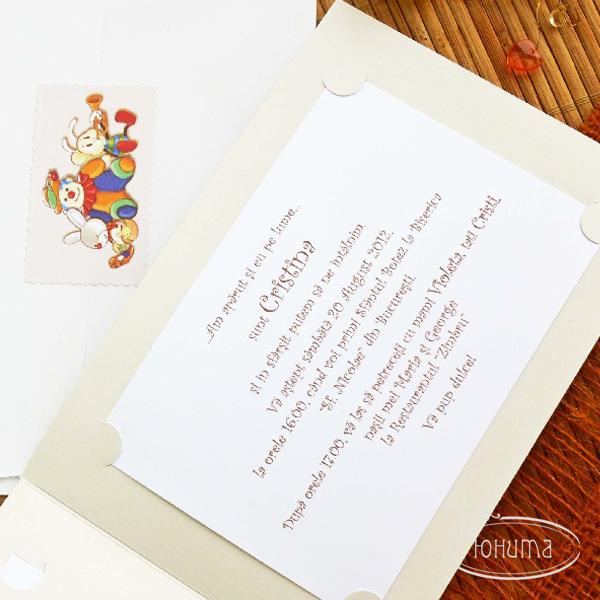 ...Am apărut și eu pe lume...
sunt Cristina
și în sfârșit putem să ne întâlnim
Vă aștept sâmbătă 20 August 2012,
la orele 16:00, când voi primi Sfântul Botez la Biserica
"Sf. Nicolae" din București.
După orele 17:00, vă las să petreceți cu mami Violeta, tati Cristi,
nașii mei Maria și George
la Restaurantul "Zimbru"
Vă pup dulce!
Юнита